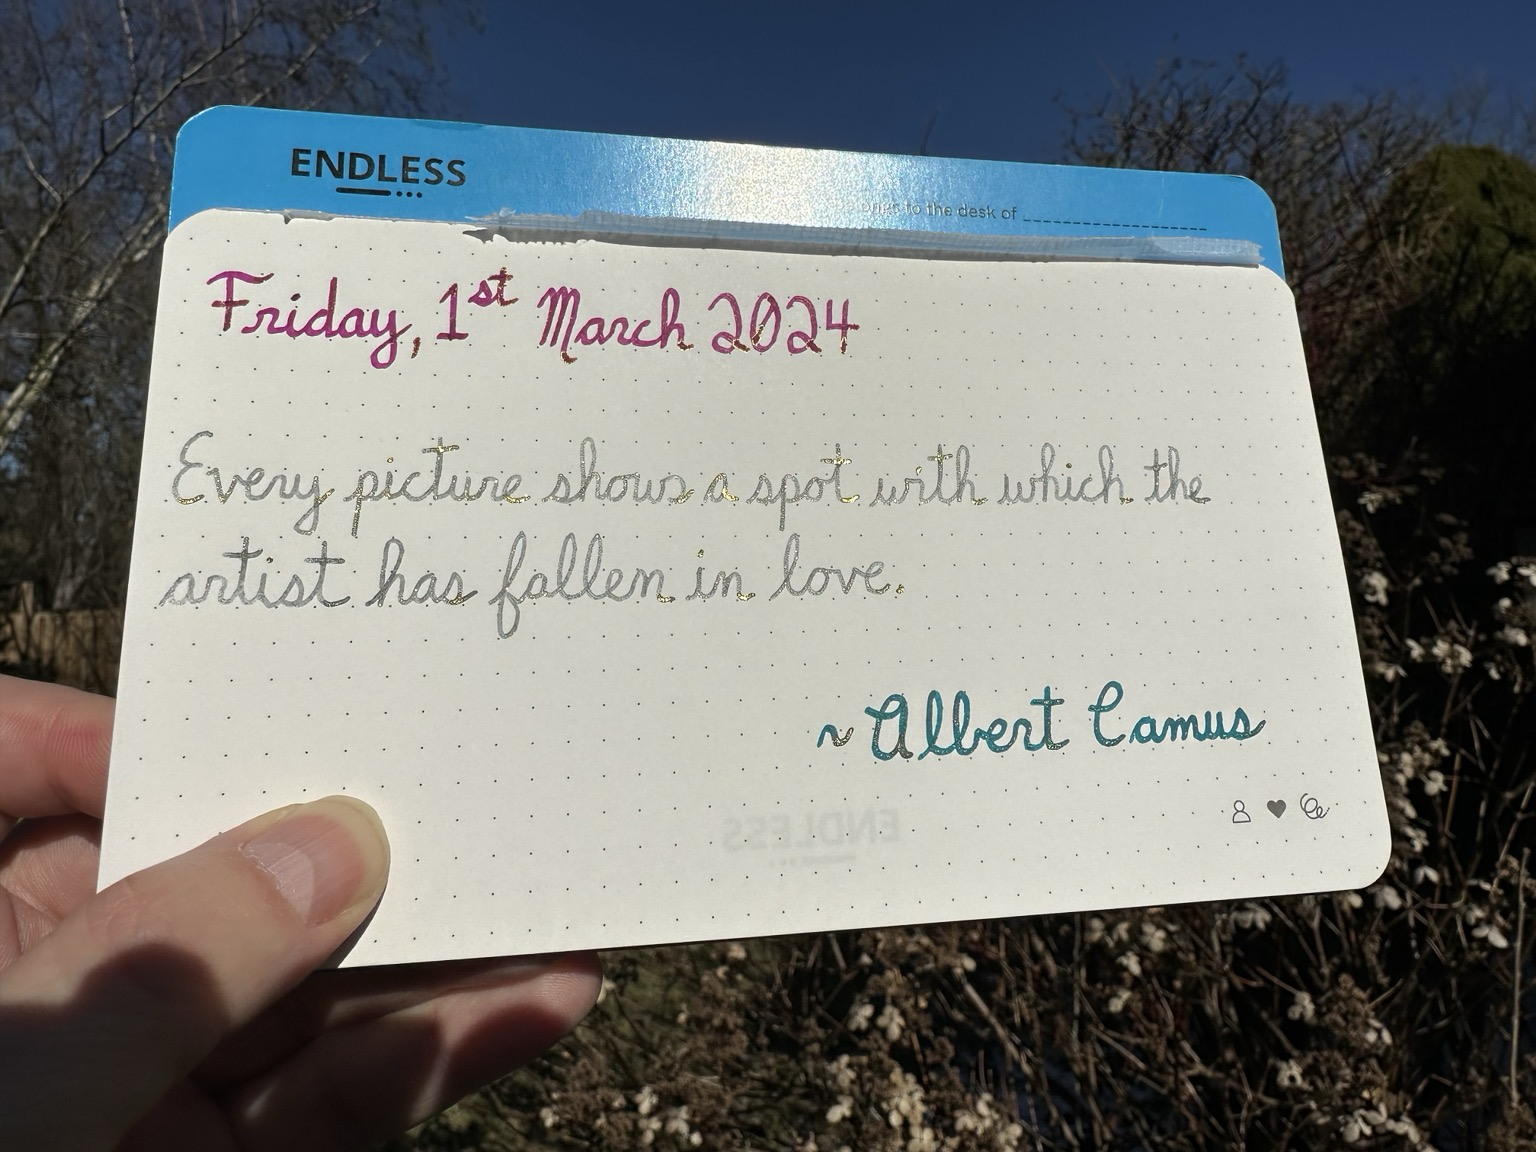 ENDLESS
to the desk of
Friday, 1st March 2024
Every picture shows a spot with which the
artist has fallen in love.
~ Albert Camus
ENDLESS